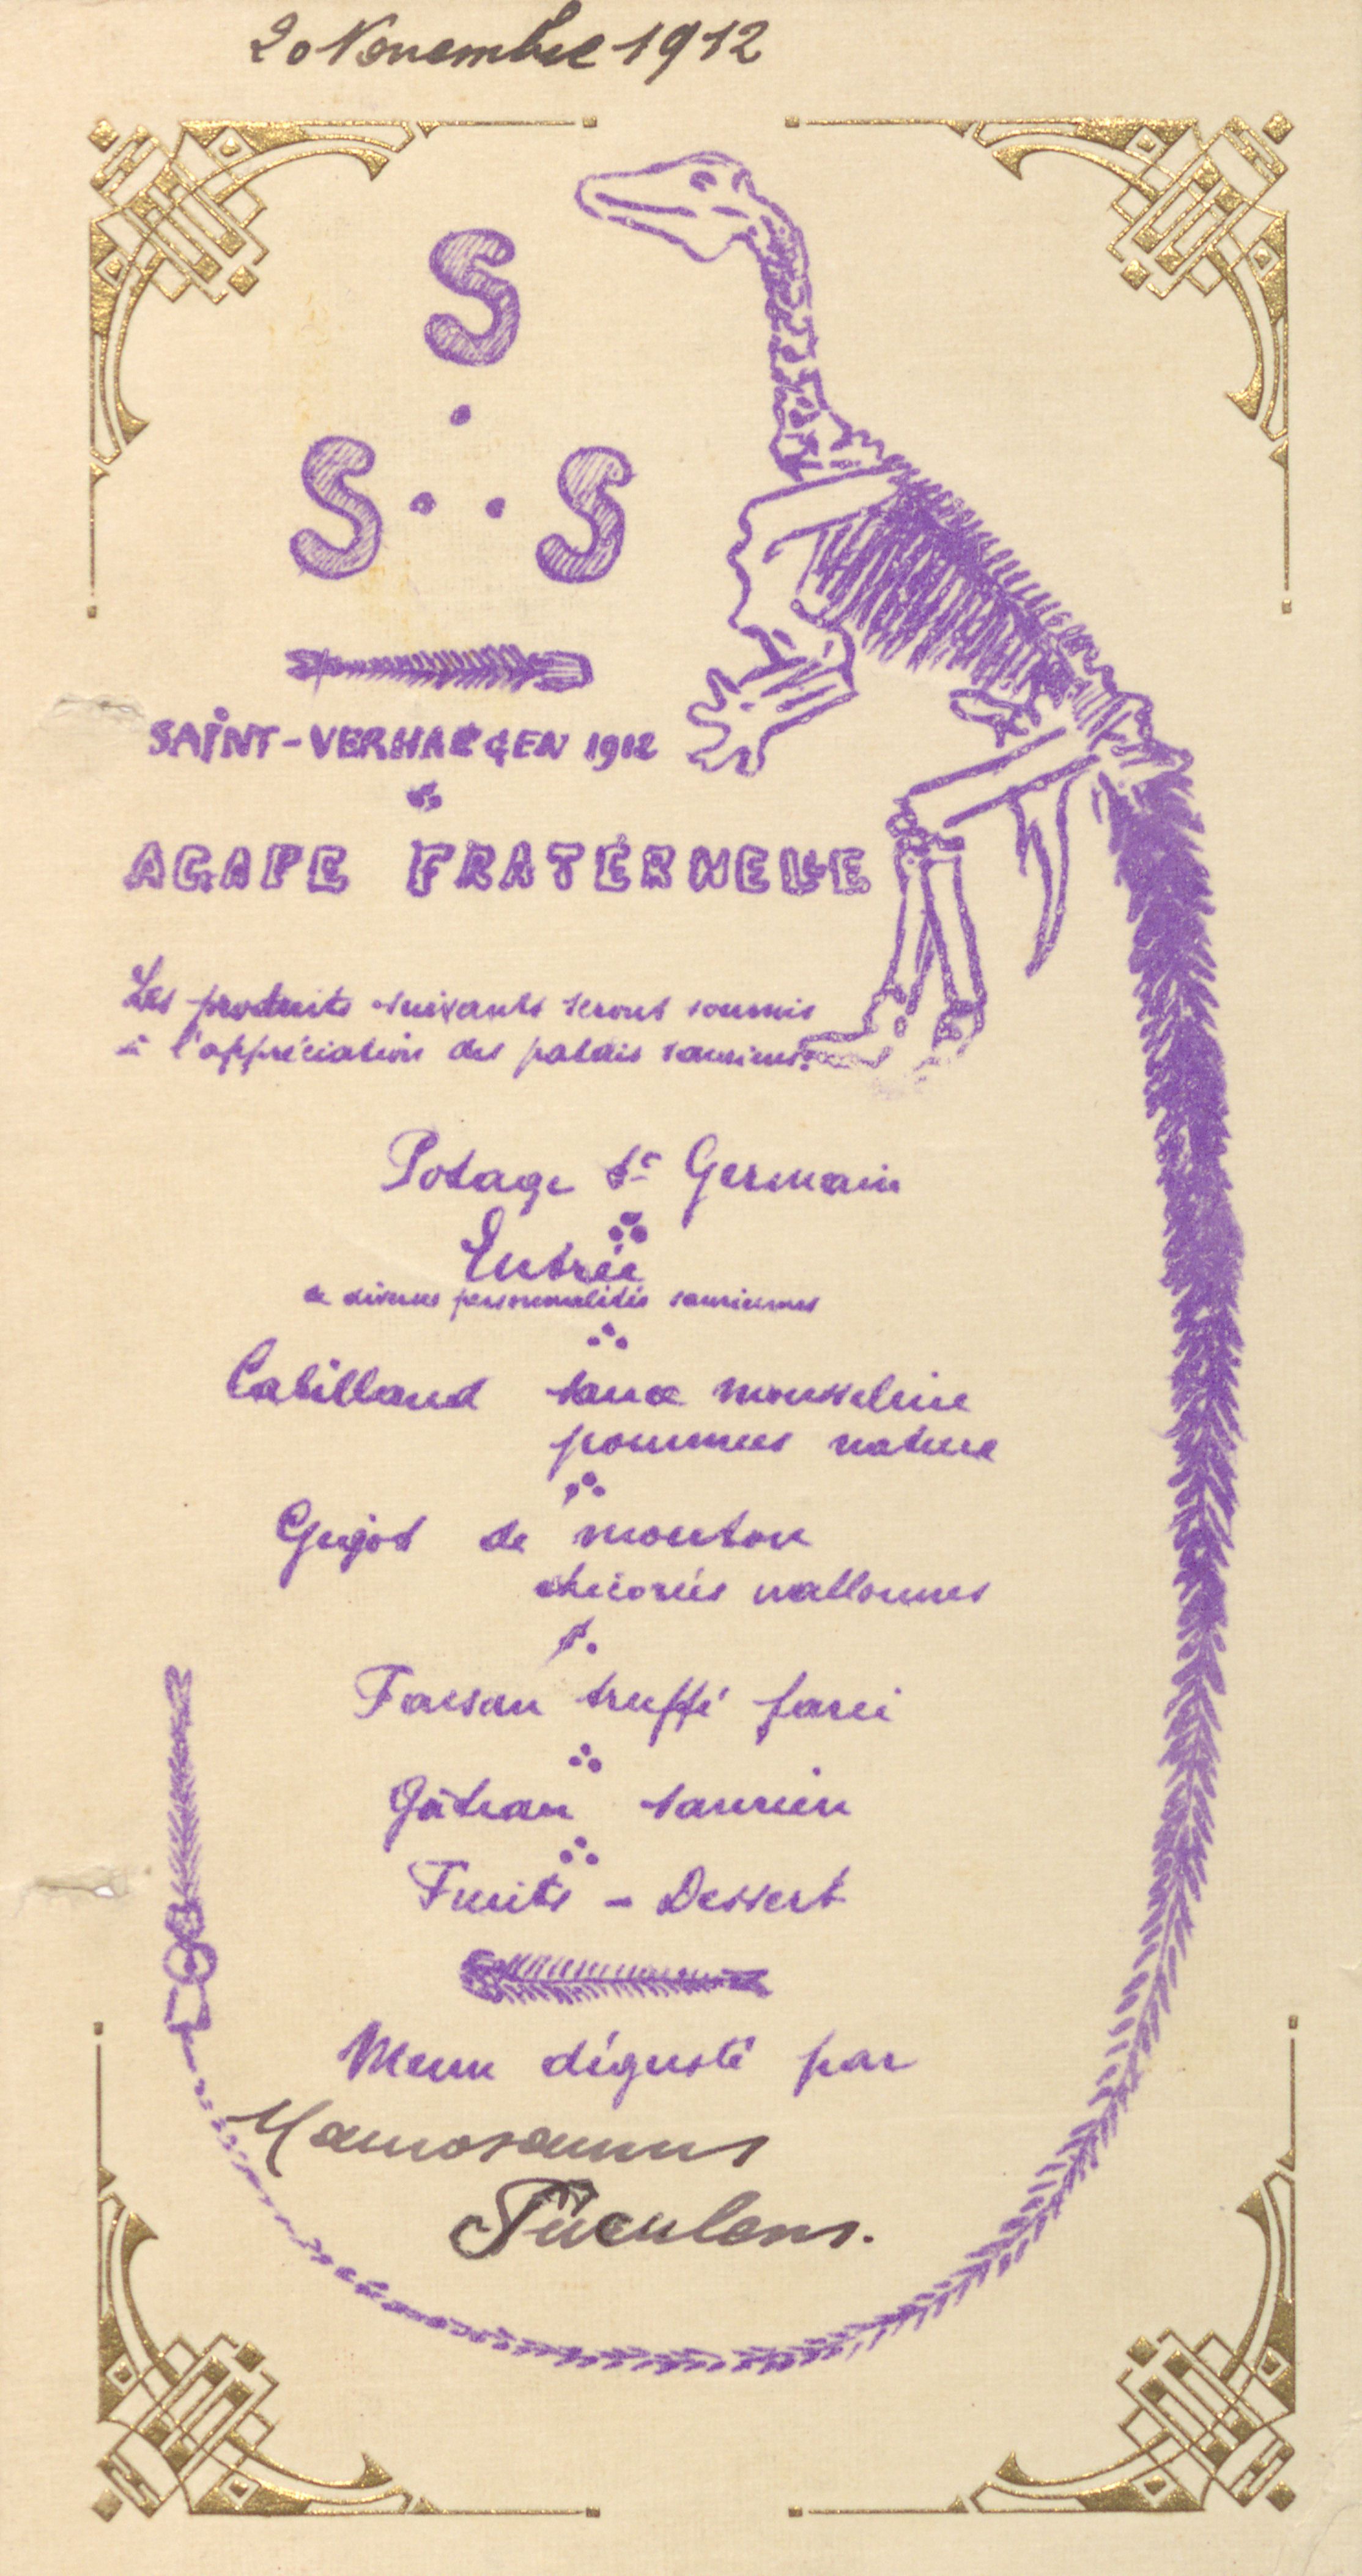 20 Novembre 1912
S
S S
SAINT-VERHAEGEN 1912
AGAPE FRATERNELLE
Les produits suivants seront soumis
à l'appréciation des palais sauriens:
Potage St Germain
Entrée
de diverses personnalités sauriennes
Cabillaud sauce mousseline
pommes nature
Gigot de mouton
chicorées wallonnes
Faisan truffé farci
Gâteau saurien
Fruits - Dessert
Menu dégusté par